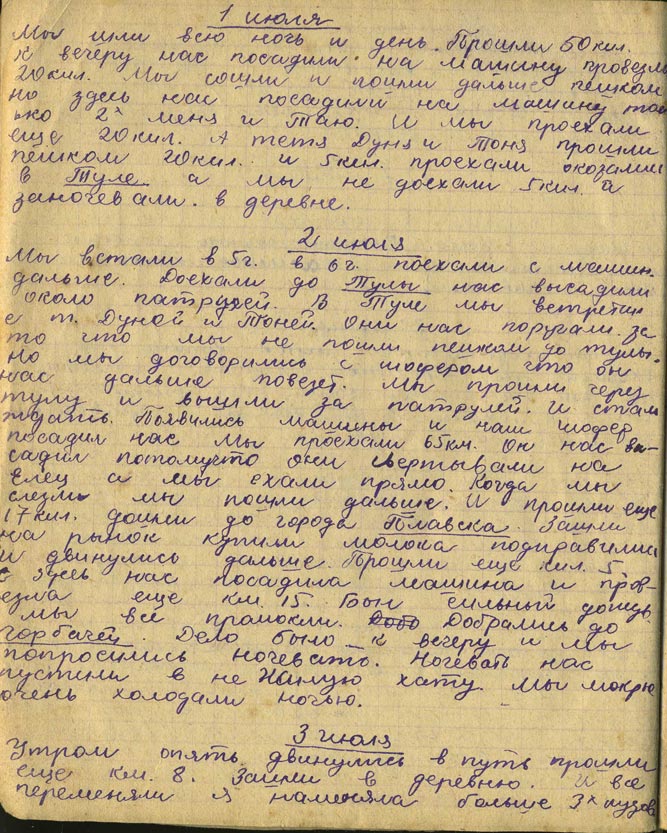 1 июля
Мы шли всю ночь и день. Прошли 50 кил.
к вечеру нас посадили на машину провезли
20 кил. Мы сошли и пошли дальше пешком
но здесь нас посадили на машину тол
ько 2х меня и Таю. И мы проехали
еще 20 кил. А тетя Дуня и Тоня прошли
пешком 20 кил. и 5 кил. проехали окозались
в Туле а мы не доехали 5 кил. и
заночевали. в деревне.
2 июля
Мы встали в 5 г. в 6 г. поехали с машин.
дальше. Доехали до Тулы нас высадили
около патрулей. В Туле мы встретились
с т. Дуной и Тоней. Они нас поругали за
то что мы не пошли пешком до тулы.
Но мы договорились с шофером что он
нас дальше повезет. Мы прошли через
тулу и вышли за патрулей. И стали
ждать. Появились машины и наш шофер
посадил нас мы проехали 65 км. Он нас вы-
садил потомучто они свертывали на
Елец а мы ехали прямо. Когда мы
слезли мы пошли дальше. И прошли еще
17 кил. дошли до города Плавска. Зашли
на рынок купили молока подправились
и двинулись дальше. Прошли еще кил. 5.
с Здесь нас посадила машина и пров-
езла еще км. 15. Был сильный дождь
мы все промокли. Добрались до
горбачей. Дело было к вечеру и мы
попросились ночевать. Ночевать нас
пустили в не жилую хату. Мы мокрые
очень холодали ночью.
3 июля
Утром опять двинулись в путь прошли
еще км. 8. Зашли в деревню. И все
переменяли я наменяла больше 3х пудов